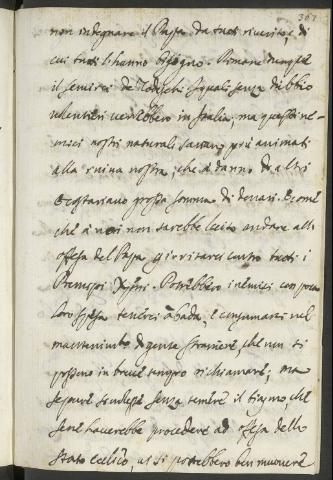 307
non sdegnare il Papa da tutti riverito, e di
cui tutti hanno bisogno. Rimane dunque
il servirci de Tedeschi i quali senza dubbio
volentieri verrebbero in Italia, ma questi ne-
mici nostri naturali saranno più animati
alla ruina nostra, che à danno di altri
e costariano grossa somma di denari. Et oltre
che à noi non sarebbe lecito andare alla
offesa del Papa irritarci contro tutti i
Prencipi Potrebbero i nemici con poca
loro spesa tenerci à bada, e consumarci nel
mantenimento di gente straniere, che non si
possono in breve tempo richiamare; ma
se pure scendesse senza temere il tiranno, che
se ne haverebbe procedere ad offesa dello
stato eccl.co, vi si potrebbero ben muovere